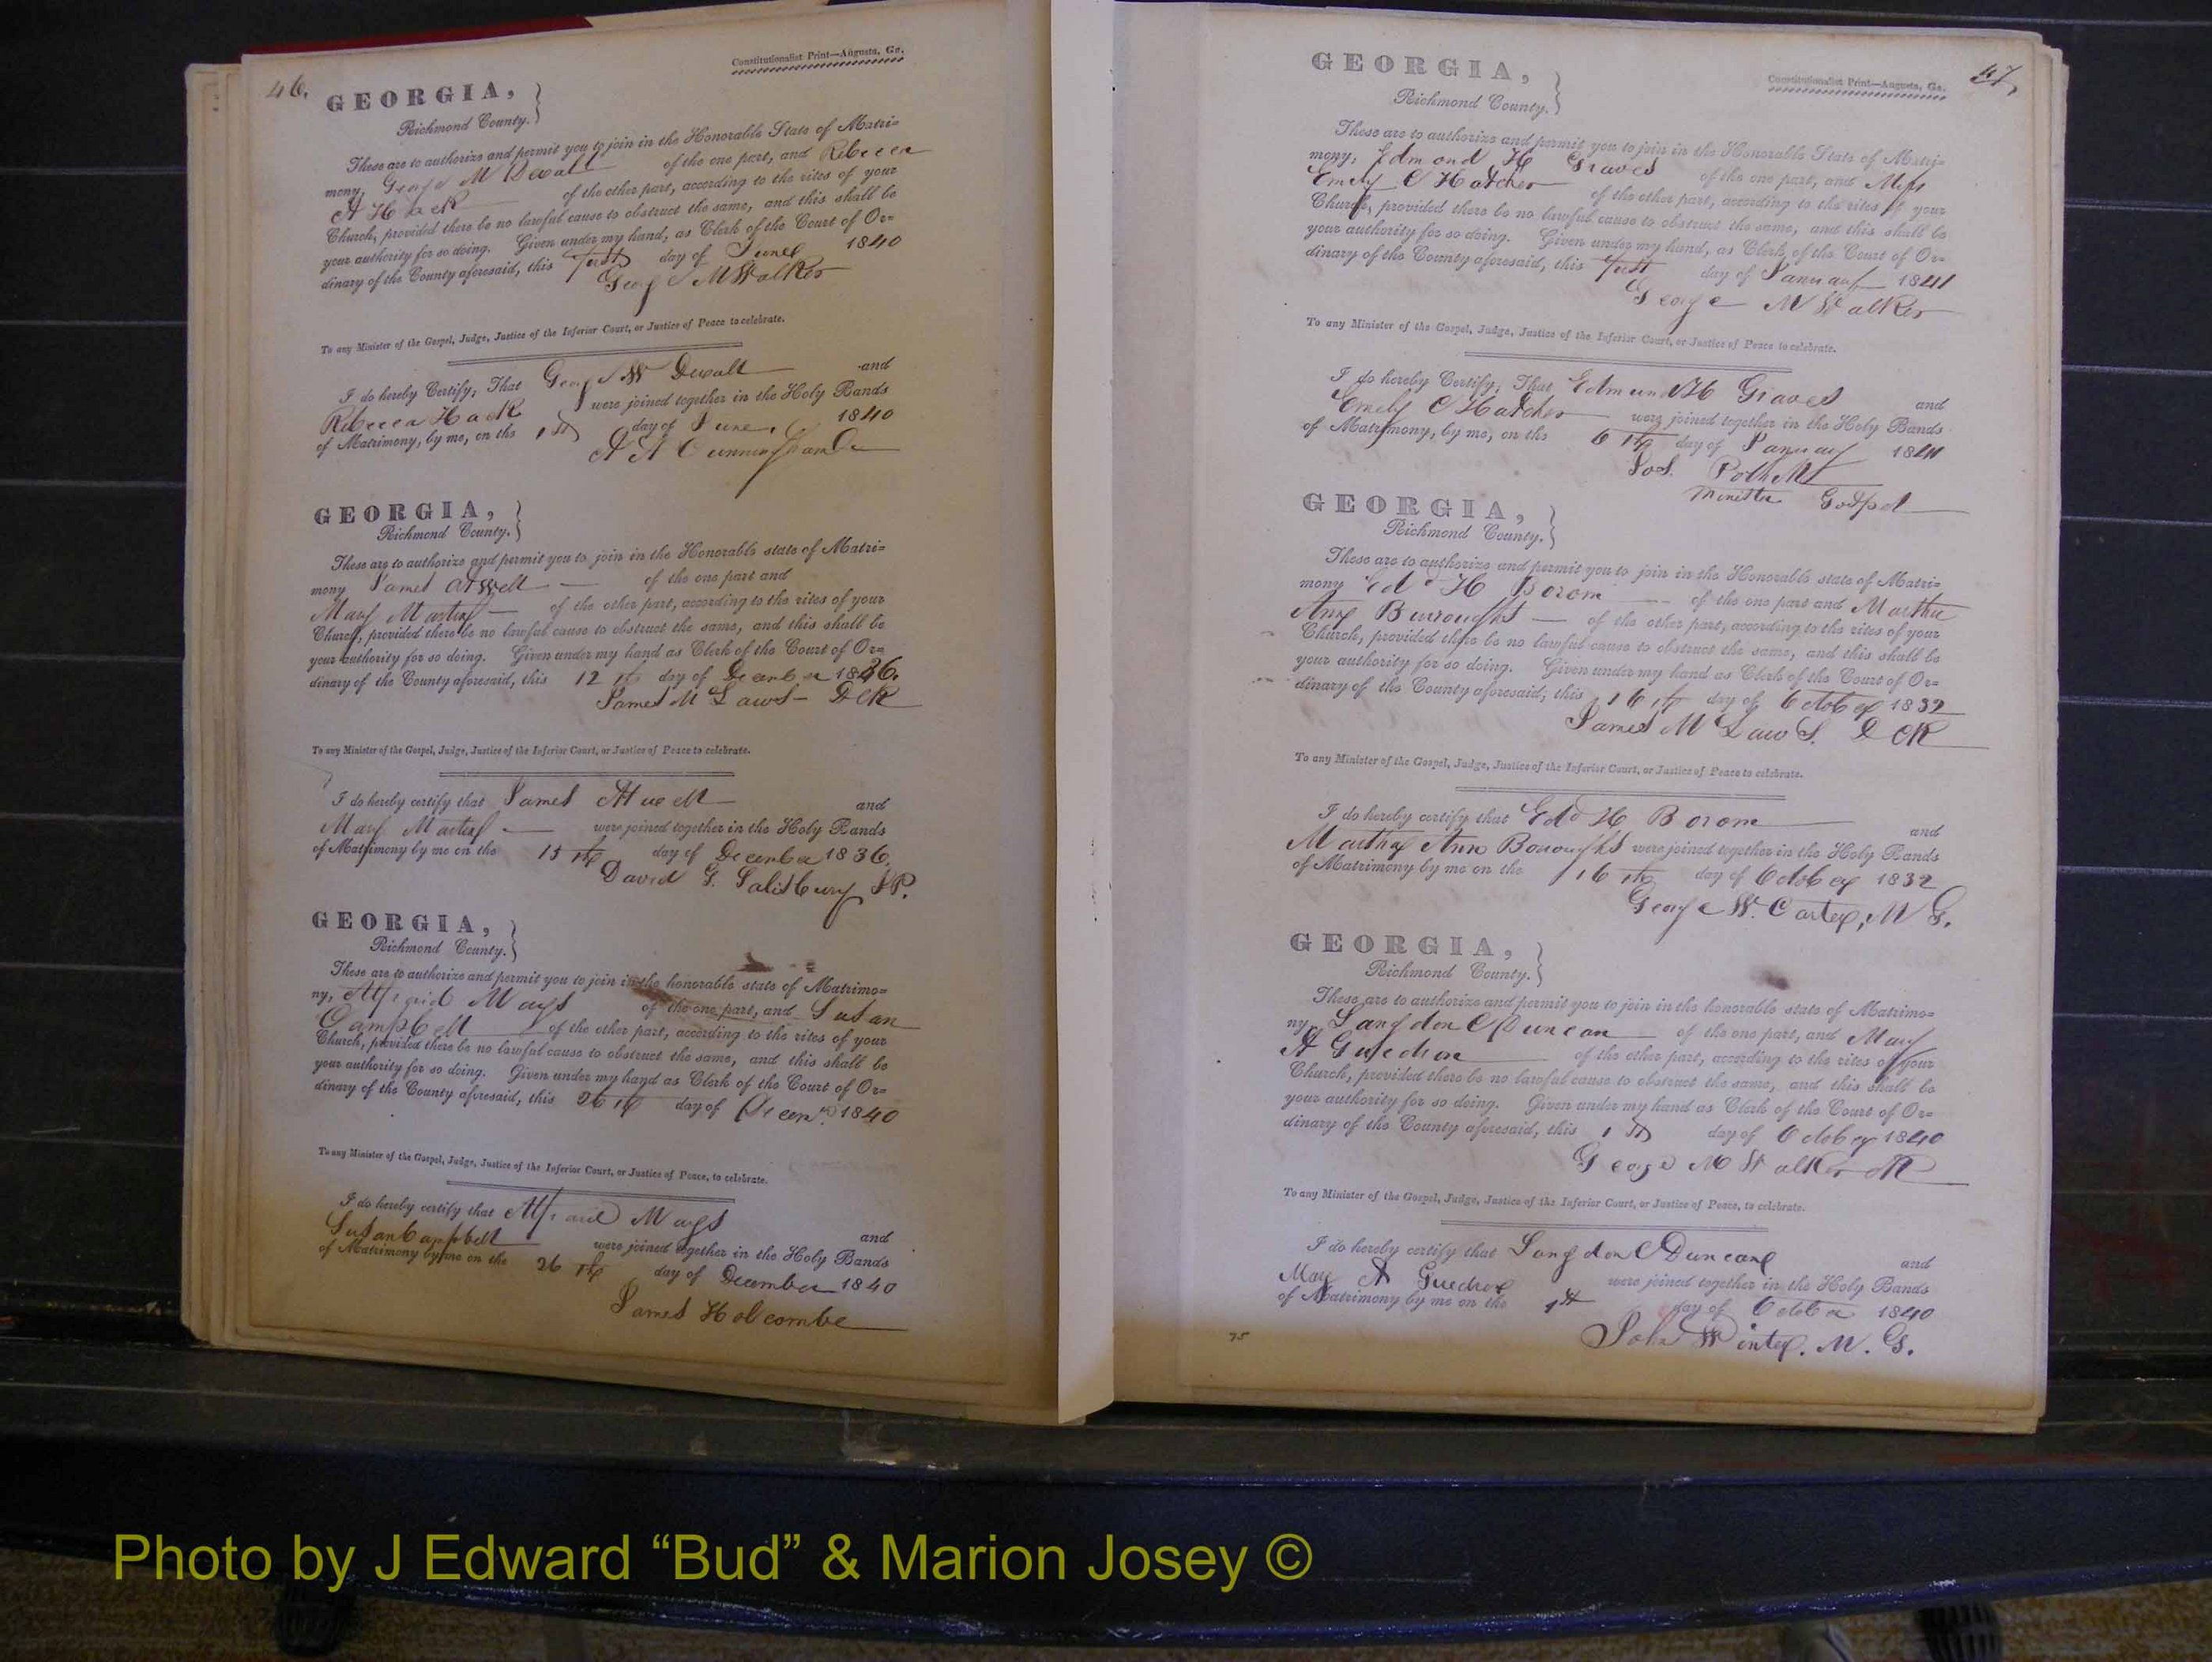 46.
Constitutionalist Print—Augusta, Ga.
GEORGIA,
Richmond County.
These are to authorize and permit you to join in the Honorable State of Matri=
mony, George M Dewalt of the one part, and Rebecca
A Hack of the other part, according to the rites of your
Church, provided there be no lawful cause to obstruct the same, and this shall be
your authority for so doing. Given under my hand, as Clerk of the Court of Or=
dinary of the County aforesaid, this first day of June 1840
George M Walker
To any Minister of the Gospel, Judge, Justice of the Inferior Court, or Justice of Peace to celebrate.
I do hereby Certify, That George W Dewalt and
Rebecca Hack were joined together in the Holy Bands
of Matrimony, by me, on the 1st day of June, 1840
A A Cunningham
GEORGIA,
Richmond County.
These are to authorize and permit you to join in the Honorable state of Matri=
mony James Atwell of the one part and
Mary Martin of the other part, according to the rites of your
Church, provided there be no lawful cause to obstruct the same, and this shall be
your authority for so doing. Given under my hand as Clerk of the Court of Or=
dinary of the County aforesaid, this 12 th day of December 1836.
James M Laws - D Clk
To any Minister of the Gospel, Judge, Justice of the Inferior Court, or Justice of Peace to celebrate.
I do hereby certify that James Atwell and
Mary Martin were joined together in the Holy Bands
of Matrimony by me on the 15 th day of December 1836.
David G. Salisbury JP.
GEORGIA,
Richmond County.
These are to authorize and permit you to join in the honorable state of Matrimo=
ny, Alfraid Mays of the one part, and Susan
Campbell of the other part, according to the rites of your
Church, provided there be no lawful cause to obstruct the same, and this shall be
your authority for so doing. Given under my hand as Clerk of the Court of Or=
dinary of the County aforesaid, this 26 th day of Decem. 1840
To any Minister of the Gospel, Judge, Justice of the Inferior Court, or Justice of Peace, to celebrate.
I do hereby certify that Alfraid Mays and
Susan Campbell were joined together in the Holy Bands
of Matrimony by me on the 26 th day of December 1840
James Holcombe
47,
Constitutionalist Print—Augusta, Ga.
GEORGIA,
Richmond County.
These are to authorize and permit you to join in the Honorable State of Matri=
mony, Edmond H Graves of the one part, and Miss
Emely C Hatcher of the other part, according to the rites of your
Church, provided there be no lawful cause to obstruct the same, and this shall be
your authority for so doing. Given under my hand, as Clerk of the Court of Or=
dinary of the County aforesaid, this first day of January 1841
George M Walker
To any Minister of the Gospel, Judge, Justice of the Inferior Court, or Justice of Peace to celebrate.
I do hereby Certify, That Edmund H Graves and
Emely C Hatcher were joined together in the Holy Bands
of Matrimony, by me, on the 6 th day of January 1841
Jos.
Minister Gospel
GEORGIA,
Richmond County.
These are to authorize and permit you to join in the Honorable state of Matri=
mony Edd H Borom of the one part and Martha
Ann Burroughs of the other part, according to the rites of your
Church, provided there be no lawful cause to obstruct the same, and this shall be
your authority for so doing. Given under my hand as Clerk of the Court of Or=
dinary of the County aforesaid, this 16 th day of October 1832
James M Laws. D Clk
To any Minister of the Gospel, Judge, Justice of the Inferior Court, or Justice of Peace to celebrate.
I do hereby certify that Edd H Borom and
Martha Ann Borroughs were joined together in the Holy Bands
of Matrimony by me on the 16 th day of October 1832
George W. Carter, M G.
GEORGIA,
Richmond County.
These are to authorize and permit you to join in the honorable state of Matrimo=
ny, Langdon C Duncan of the one part, and Mary
A Guedron of the other part, according to the rites of your
Church, provided there be no lawful cause to obstruct the same, and this shall be
your authority for so doing. Given under my hand as Clerk of the Court of Or=
dinary of the County aforesaid, this 1st day of October 1840
George M Walker Clk
To any Minister of the Gospel, Judge, Justice of the Inferior Court, or Justice of Peace, to celebrate.
I do hereby certify that Langdon C Duncan and
Mary A Guedron were joined together in the Holy Bands
of Matrimony by me on the 1st day of October 1840
John W Winter. M. G.
75
Photo by J Edward “Bud” & Marion Josey ©